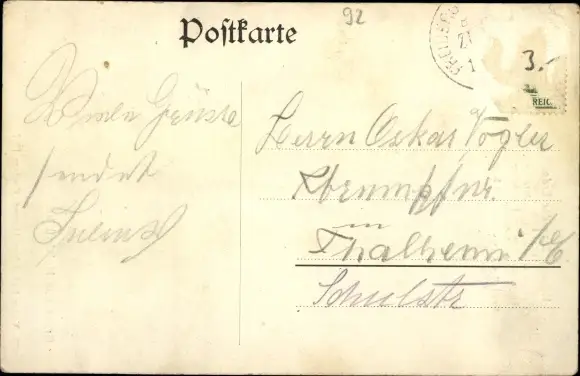 Postkarte
92
3.-
REIC
Viele Grüsse
sendet
Herrn Oskar Vogler
in
Thalheim i/E
Schulstr